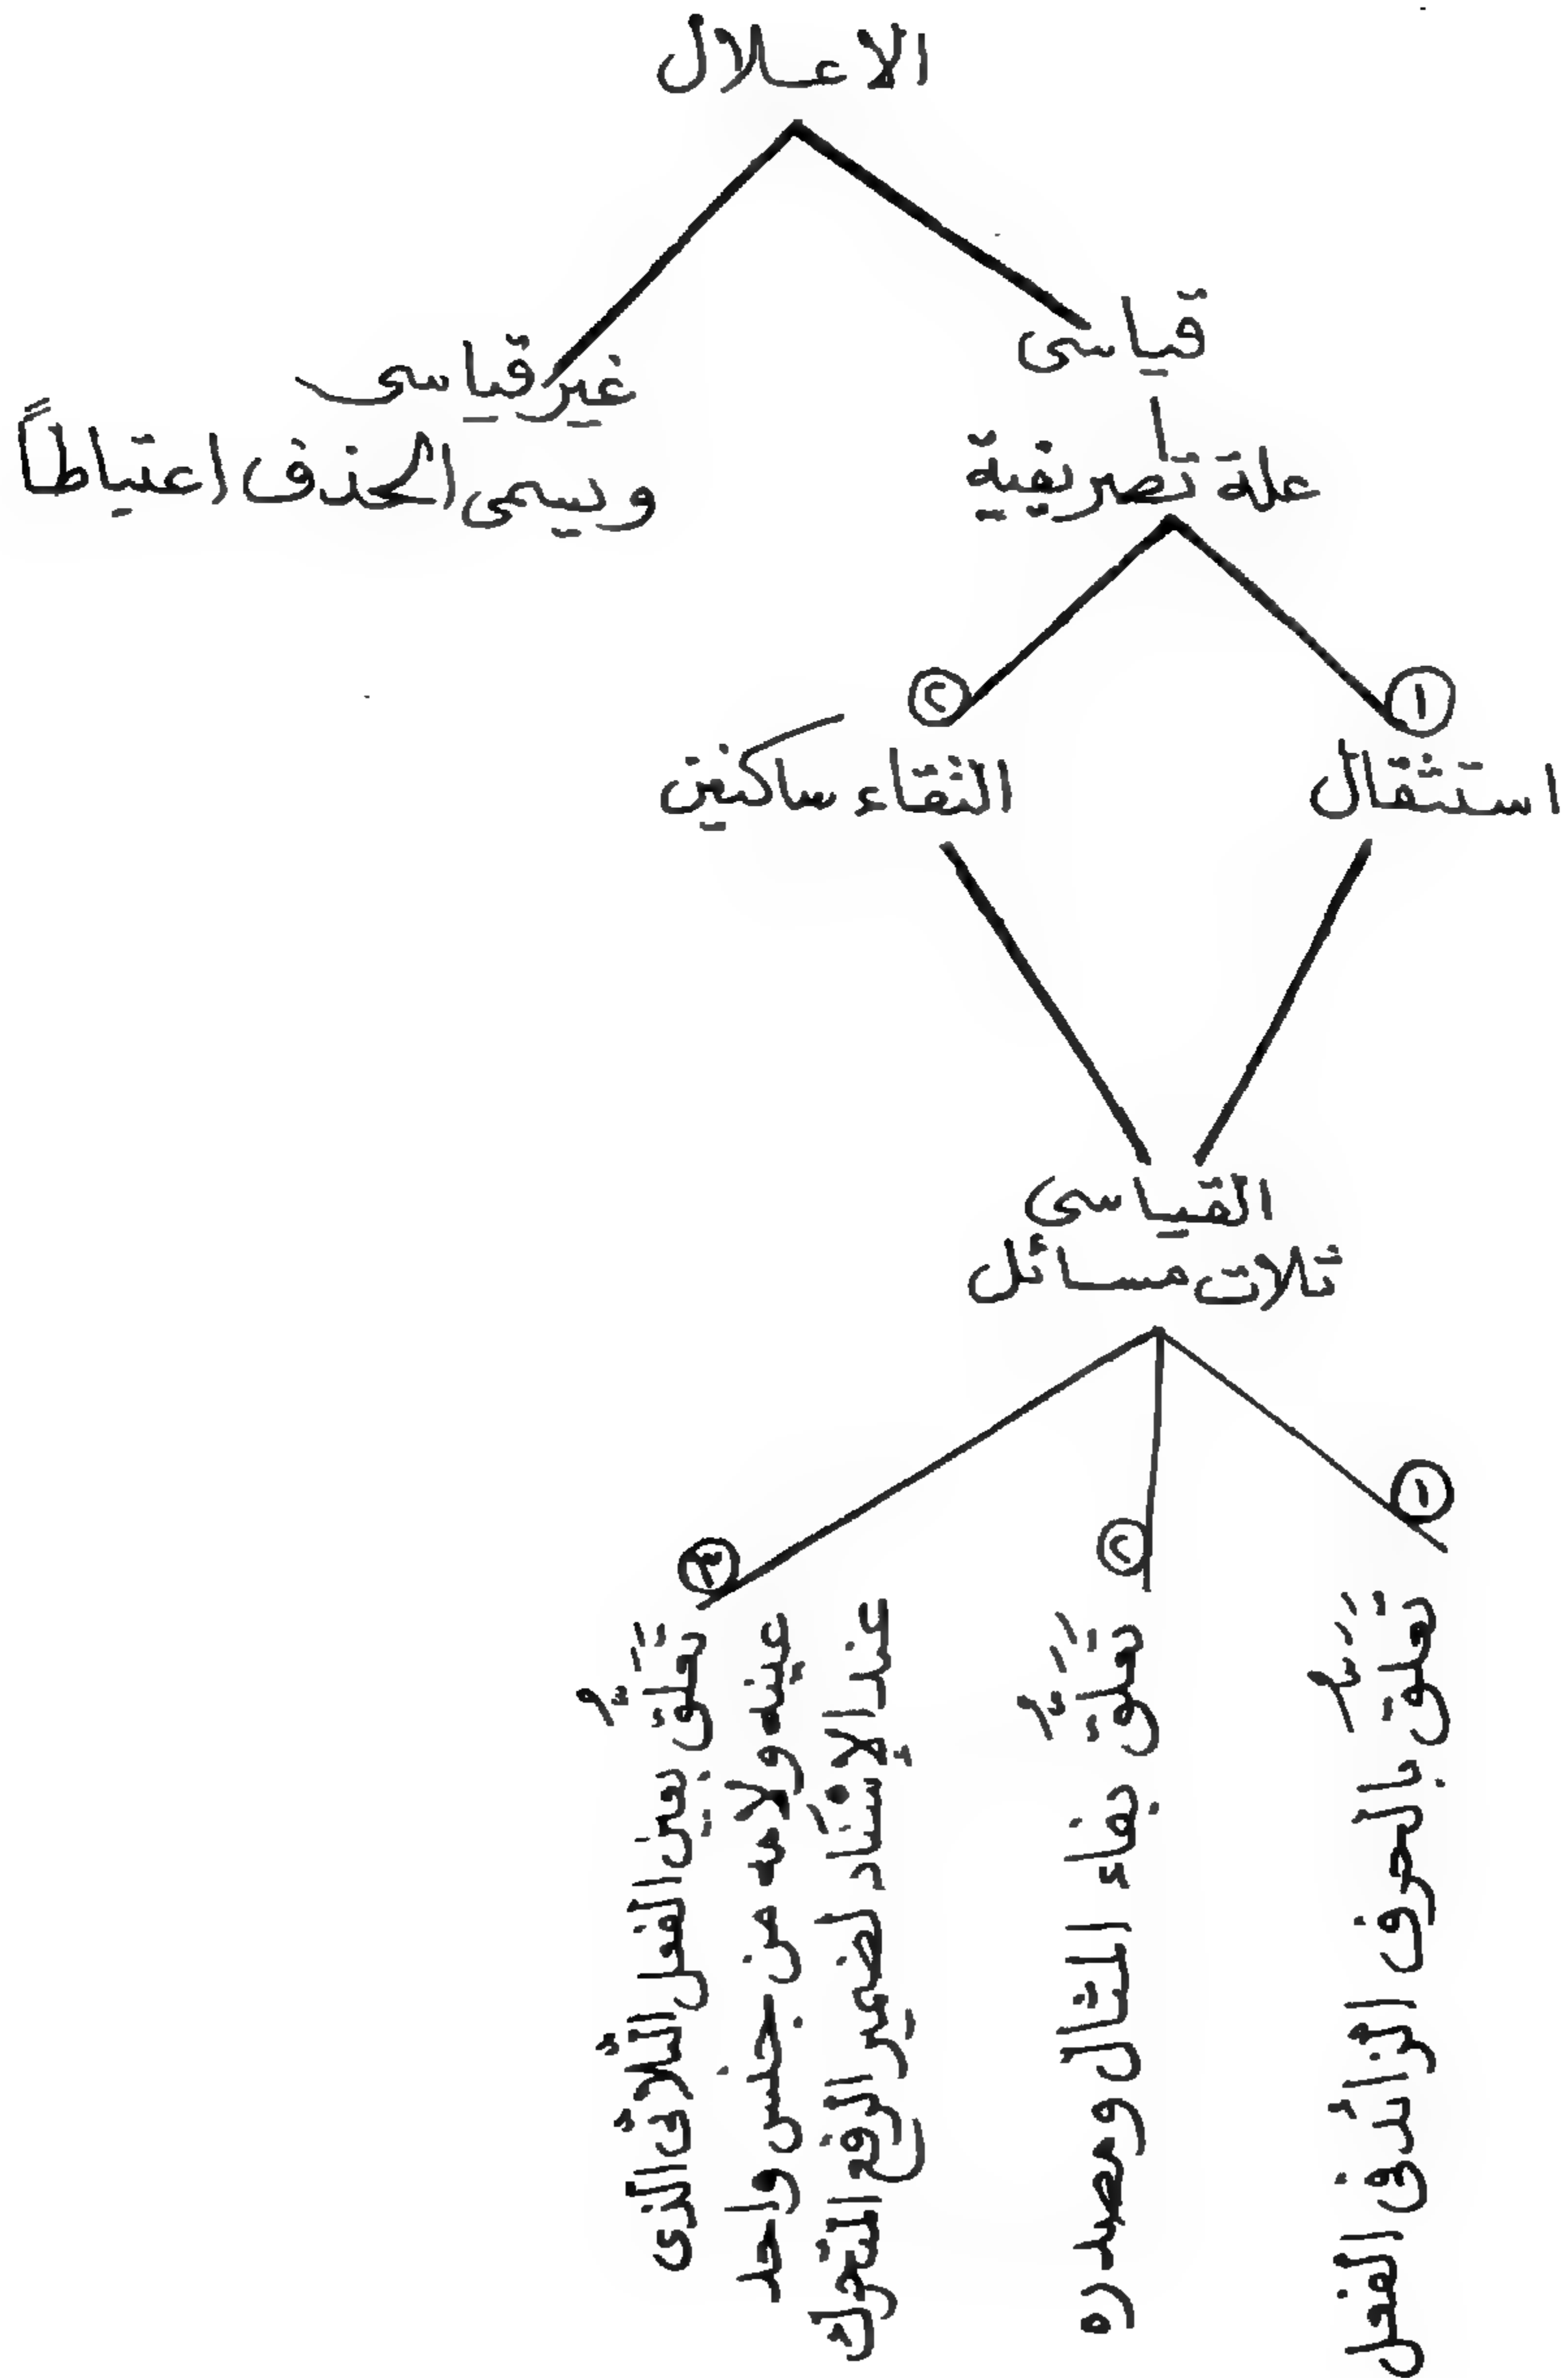 الاعلال
قياسى
غير قياسى
ويسمى الحذف اعتباطاً
علة تصريفية
١
٢
استثقال
التقاء ساكنين
القياسى
ثلاث مسائل
١
تتعلق بالحرف الزائد فى الفعل
٢
تتعلق بفاء المثال ومصدره
٣
تتعلق بعين الفعل الثلاثى الذى
عينه ولامه من جنس واحد
عند الإسناد لضمير الرفع المتحرك